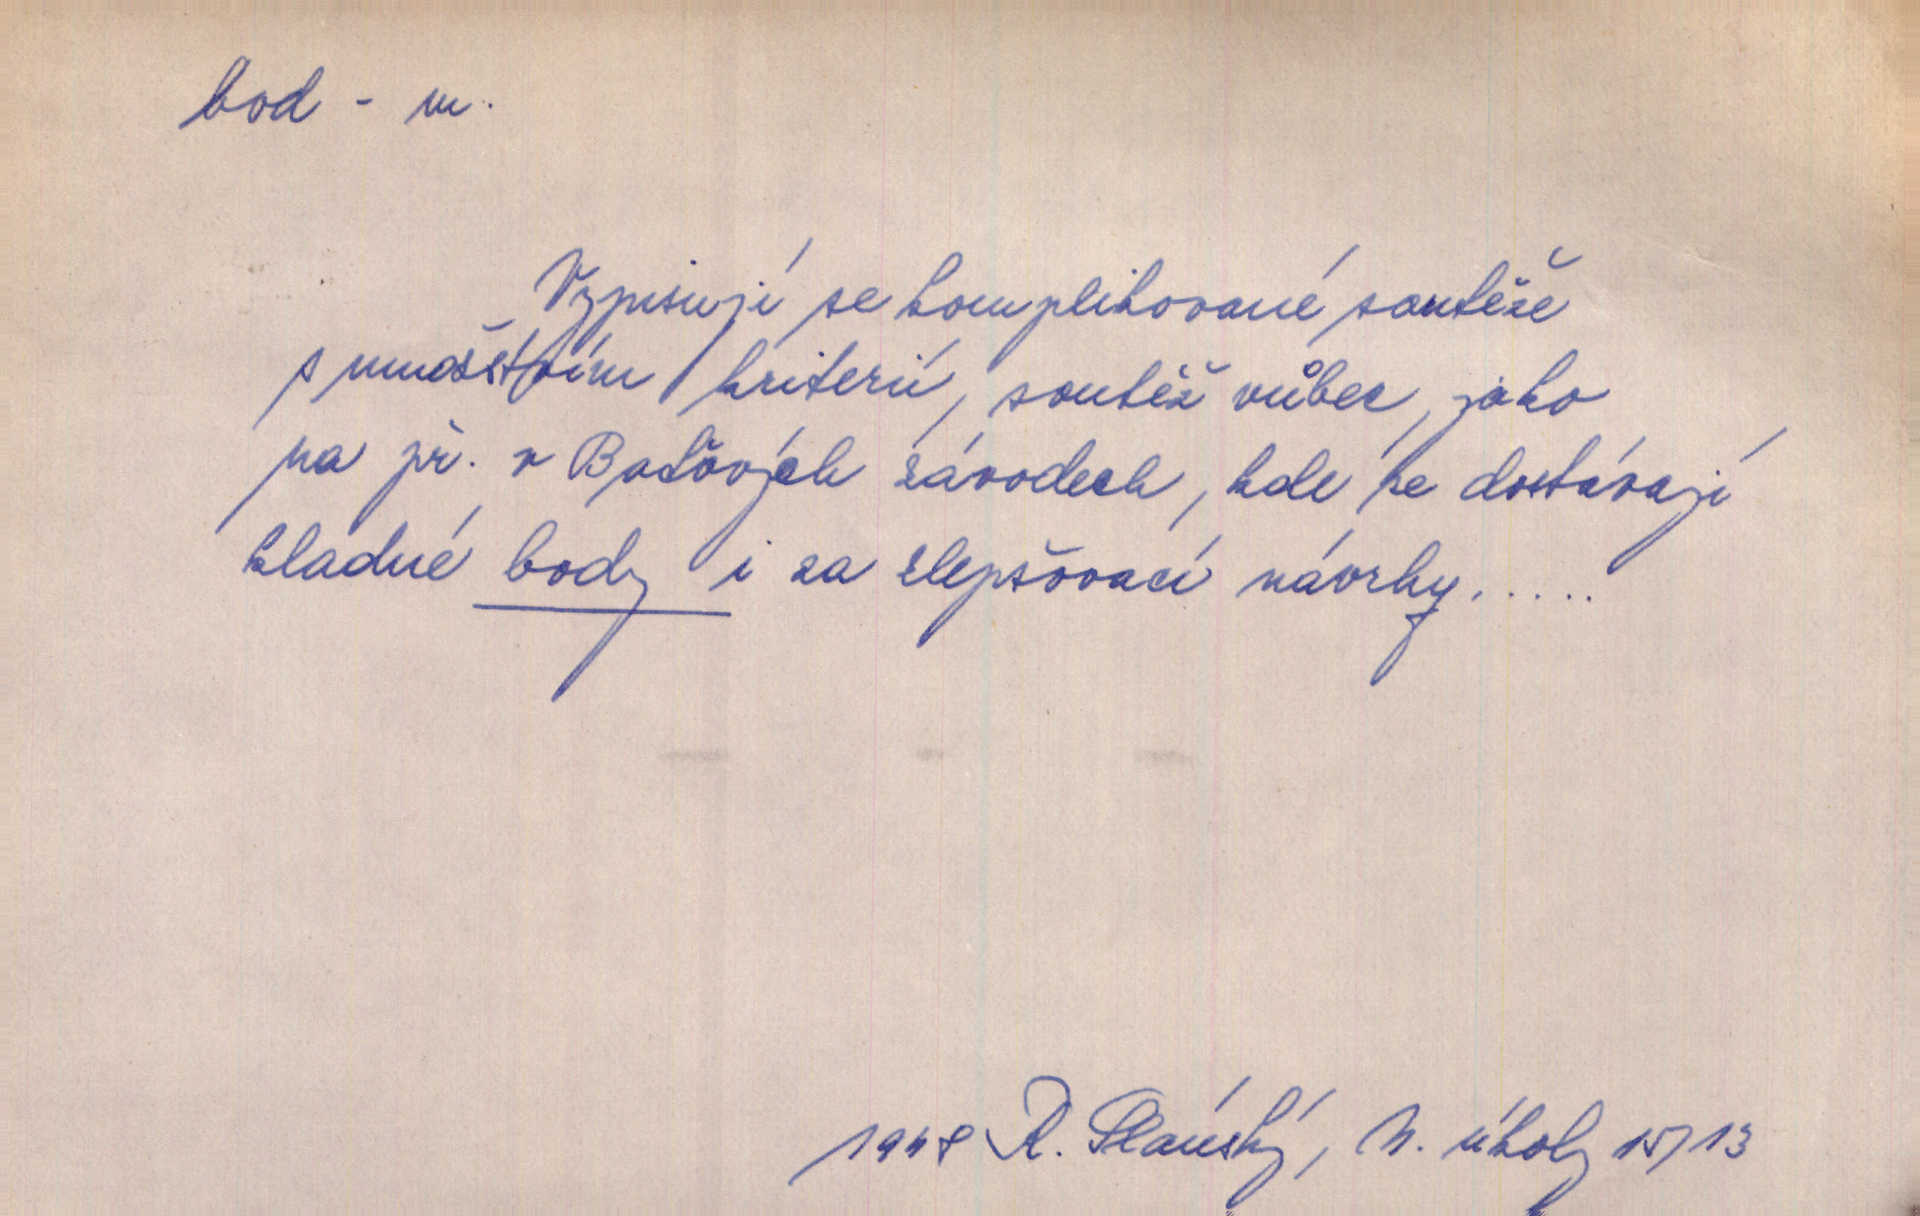 bod - m.
Vypisují se komplikované soutěže
s množstvím kriterií, soutěž vůbec, jako
na př. v Baťových závodech, kde se dostávají
kladné body i za zlepšovací návrhy.....
1948 R. Slánský, N. úkoly 15/13